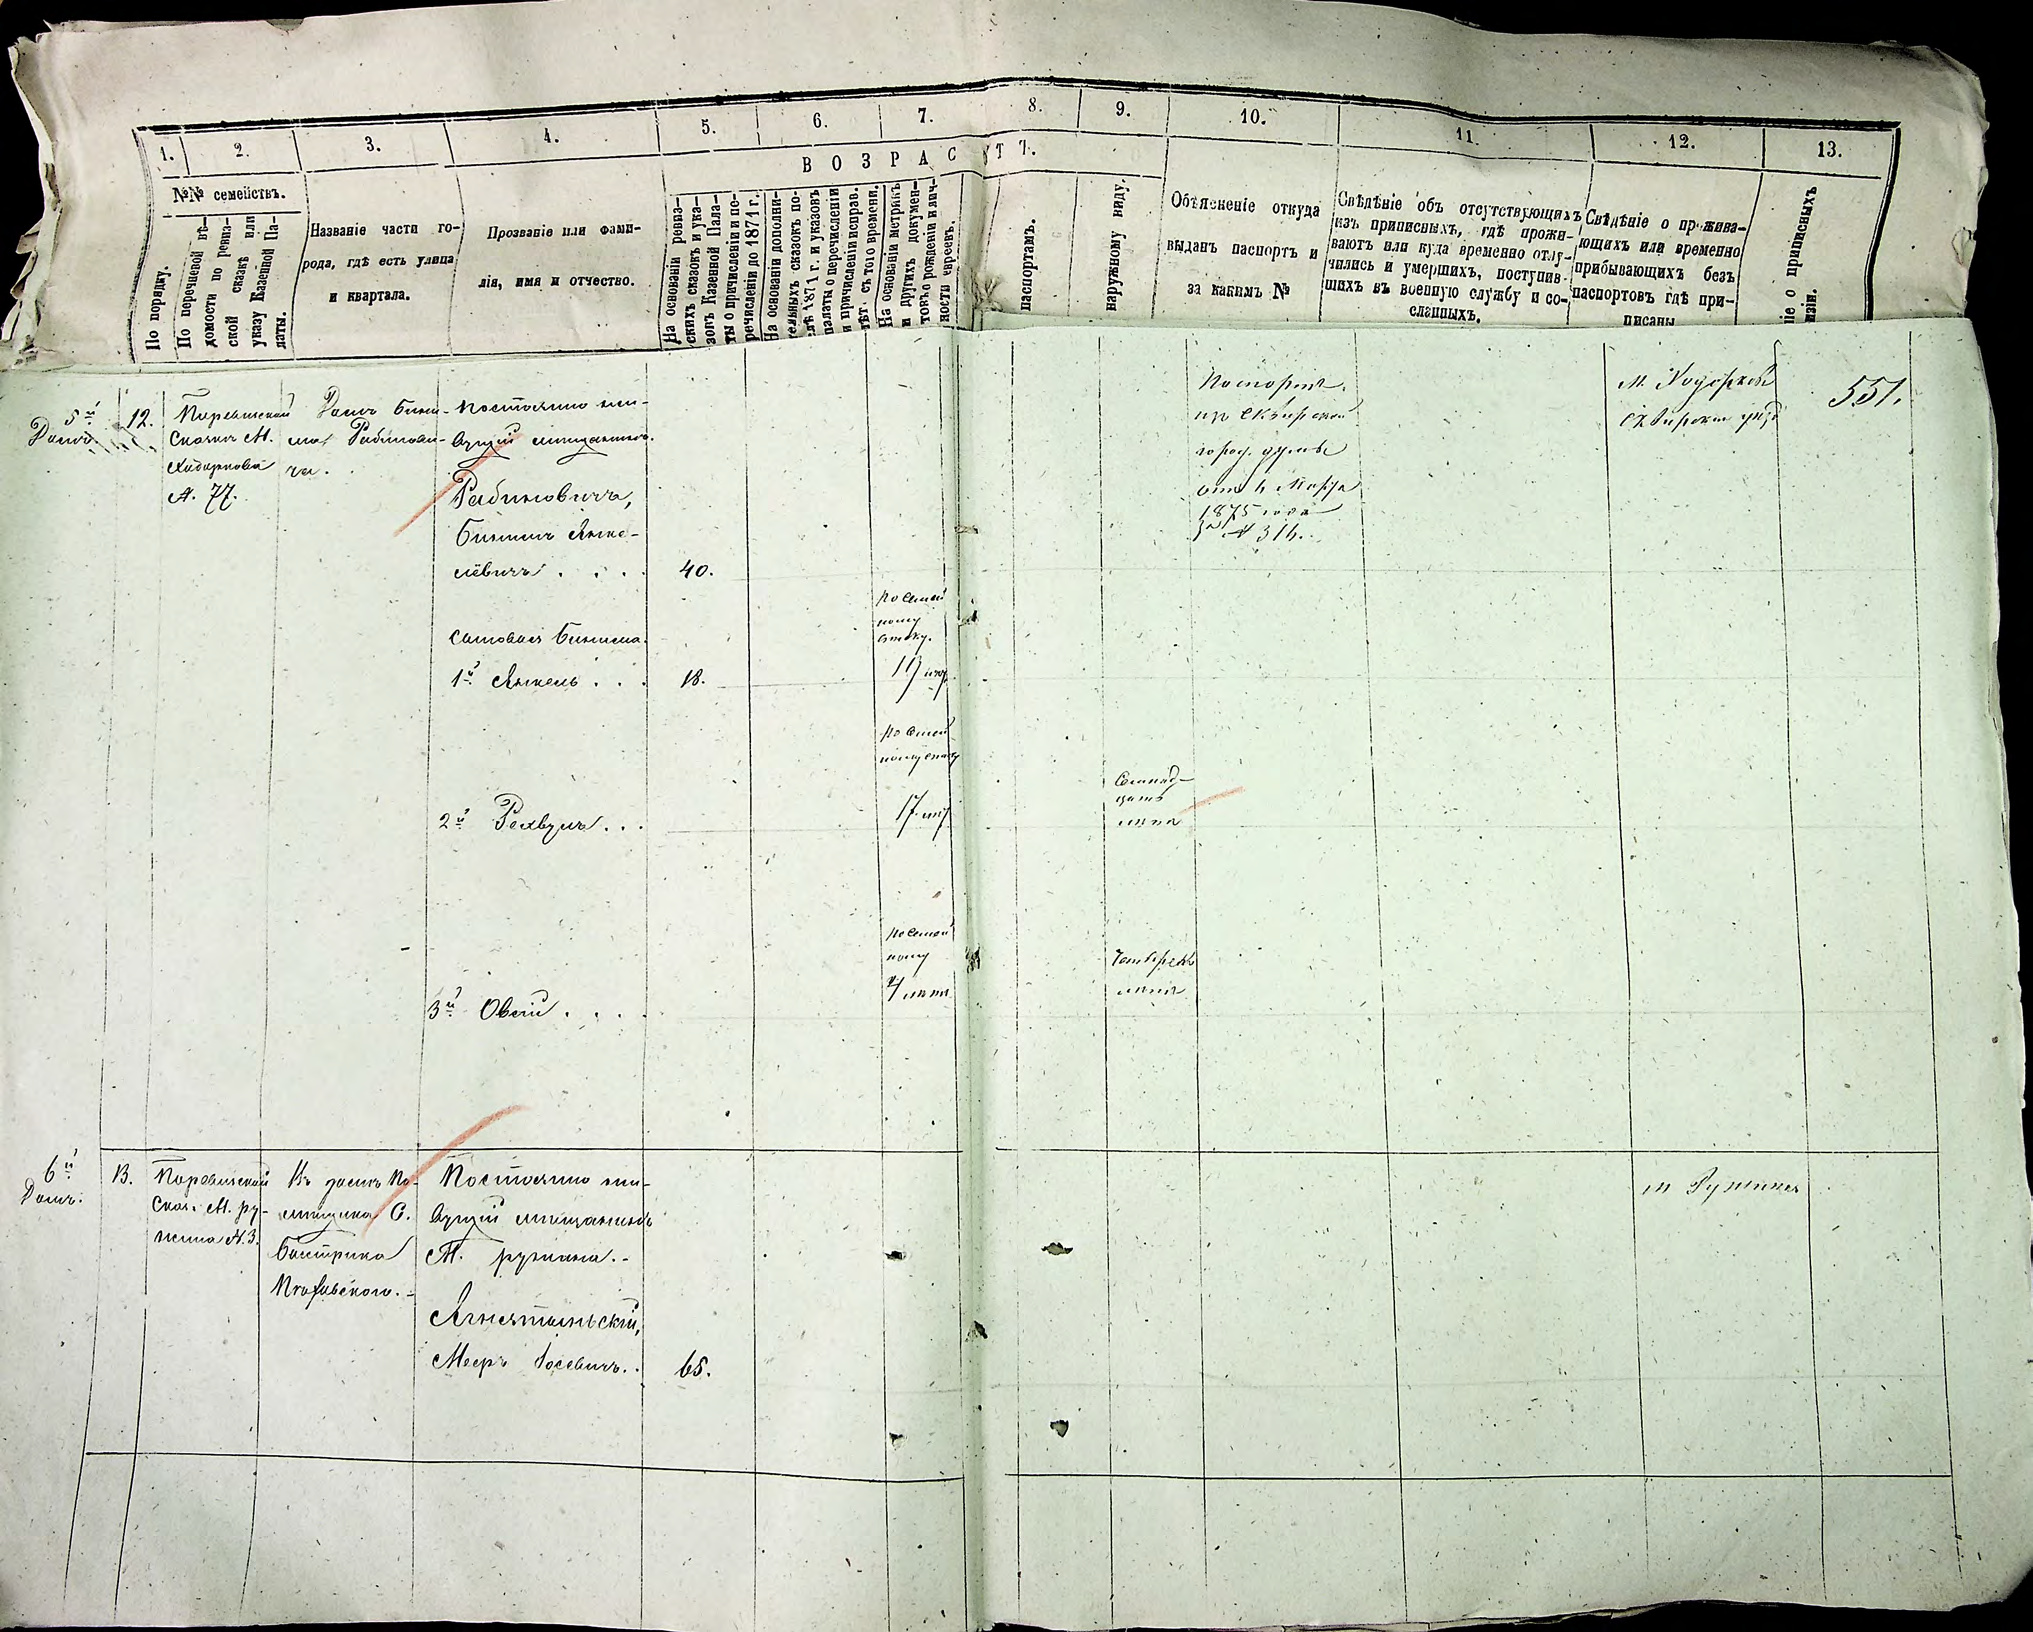 1.
2.
3.
4.
5.
6.
7.
8.
9.
10.
11.
12.
13.
ВОЗРАСТЪ.
№№ семействъ.
По порядку.
По перечневой вѣ-
домости по ревиз-
ской сказкѣ или
указу Казенной Па-
латы.
Названіе части го-
рода, гдѣ есть улица
и квартала.
Прозваніе или фами-
лія, имя и отчество.
На основаніи ревиз-
скихъ сказокъ и ука-
зовъ Казенной Пала-
ты о причисленіи и пе-
речисленіи до 1871 г.
На основаніи дополни-
тельныхъ сказокъ по-
слѣ 1871 г. и указовъ
палаты о перечисленіи
и причисленіи исправ.
лѣт. съ того времени.
На основаніи метрикъ
и другихъ докумен-
товъ о рожденіи и лич-
ности евреевъ.
паспортамъ.
наружному виду.
Объясненіе откуда
выданъ паспортъ и
за какимъ №
Свѣдѣніе объ отсутствующихъ
изъ приписныхъ, гдѣ прожи-
ваютъ или куда временно отлу-
чились и умершихъ, поступив-
шихъ въ военную службу и со-
сланныхъ.
Свѣдѣніе о прожива-
ющихъ или временно
прибывающихъ безъ
паспортовъ гдѣ при-
писаны
ніе о приписныхъ
изіи.
5й
Домъ
12.
Паревизской
Сказки М.
Ходоркова
№. 77.
Домъ Бини-
ма Рабинови-
ча.
Постоянно жи-
вущій мещанинъ
Рабиновичъ,
Бинимъ Янке-
левичъ . . . .
40.
Паспортъ
изъ Сквирской
город. думы
отъ 4 Марта
1875 года
за № 314.
М. Ходоркова
Сквирскаго уѣзд
551.
Сыновья Бинима
1й Янкель . . .
18.
по семей
ному
списку.
19 лѣт
2й Рахвулъ . . .
по семей
ному списку
17 лѣт
Семнад-
цать
лѣтъ
3й Овсій . . . .
по семей
ному
4 лѣтъ
Четырехъ
лѣтъ
6й
Домъ.
13.
Паревизской
Сказ. М. Ру-
жина №. 3.
Въ домѣ По-
мещика С.
Быстрика
Постоянно жи-
вущій мещанинъ
М. Ружина. -
Меръ Іосевичъ. .
65.
м Ружина